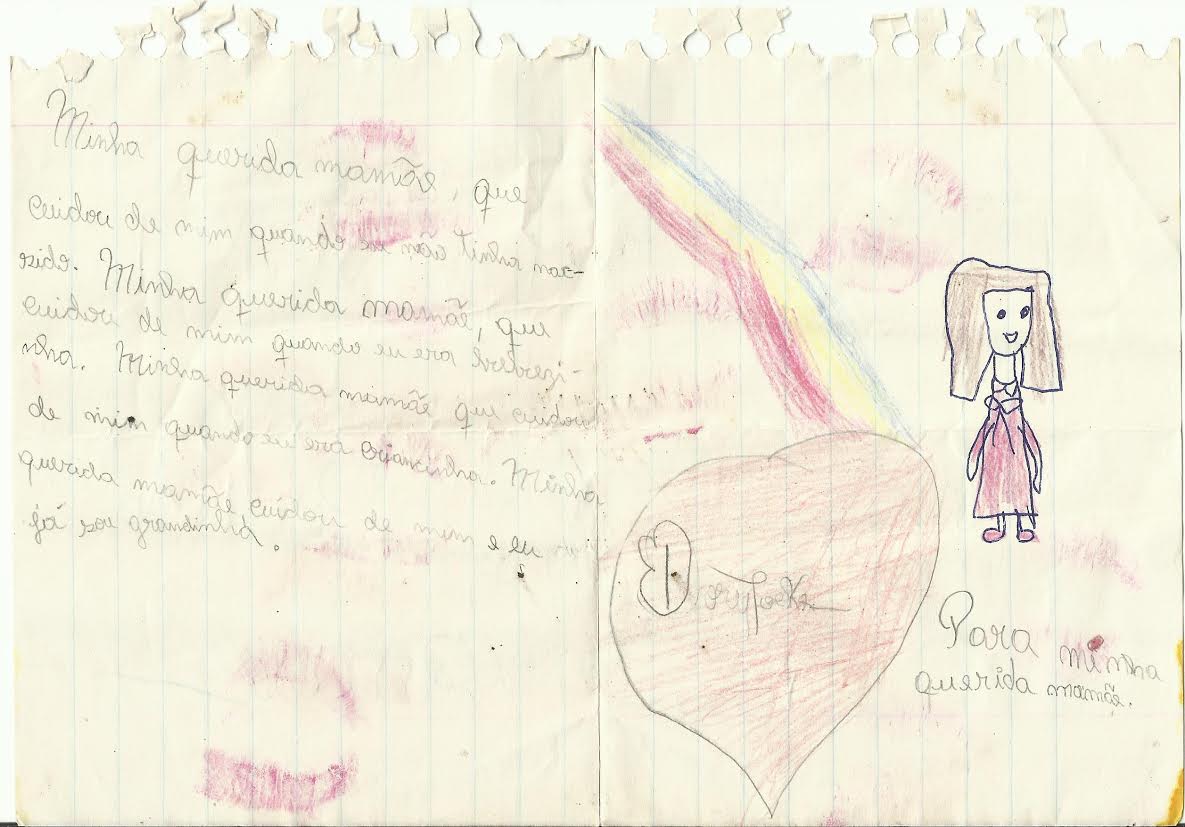 Minha querida mamãe, que
cuidou de mim quando eu não tinha nas-
sido. Minha querida mamãe, que
cuidou de mim quando eu era bebezi-
nha. Minha querida mamãe que cuidou
de mim quando eu era criancinha. Minha
querida mamãe cuidou de mim e eu
já sou grandinha.
Para minha
querida mamãe.